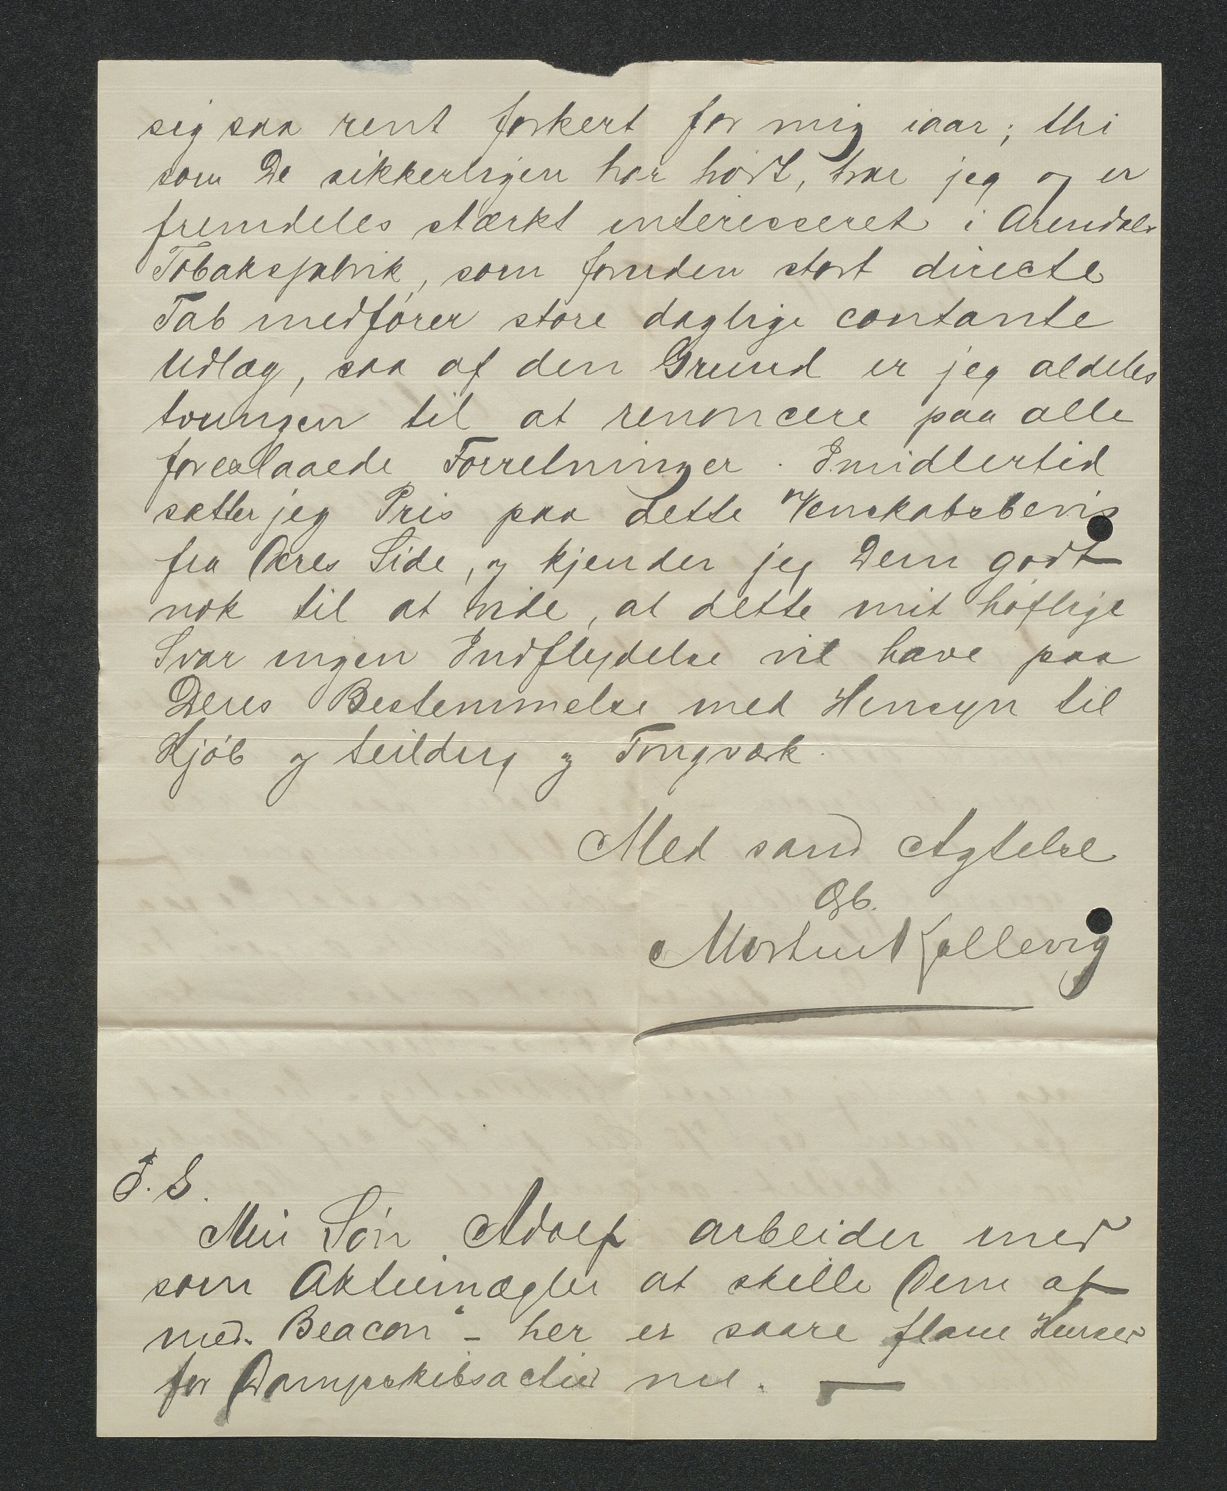 sig saa rent forkert for mig iaar; thi
som De sikkerligen har hørt, har jeg og er
fremdeles stærkt interesseret i Arendals
Tobaksfabrik, som foruden stort directe
Tab medfører store daglige contante
Udlæg, saa af den Grund er jeg aldeles
tvungen til at renoncere paa alle
foreslaaede Forretninger. Imidlertid
sætter jeg Pris paa dette Venskabsbevis
fra Deres Side, og kjender jeg Dem godt
nok til at vide, at dette mit høflige
Svar ingen Indflydelse vil have paa
Deres Bestemmelse med Hensyn til
Kjøb af Seildug og Tougværk.
Med sand Agtelse
Ærb.
Morten Kallevig
P.S.
Min Søn Adolf arbeider med
som Aktiemægler at skille Dem af
med "Beacon" - her er saare flaue Kurser
for Dampskibsactier nu. —